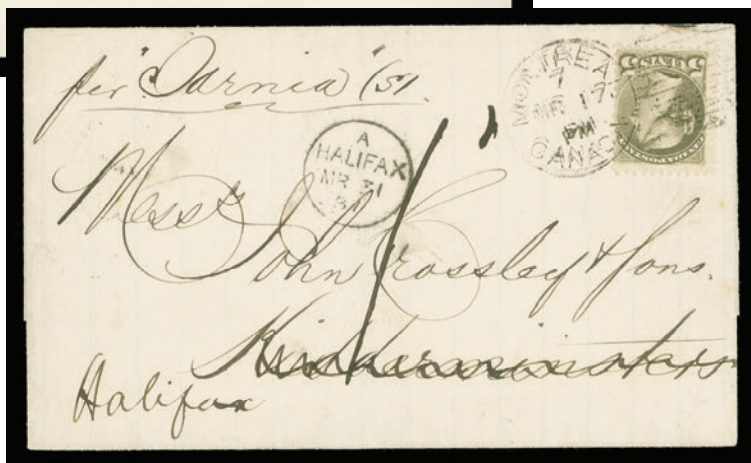 per "Sarnia" (s)
MONTREAL
7
MR 17
PM
CANADA
A
HALIFAX
MR 31
81
Mess<sup>rs</sup>
John Crossley & Sons.
Kidderminster
Halifax